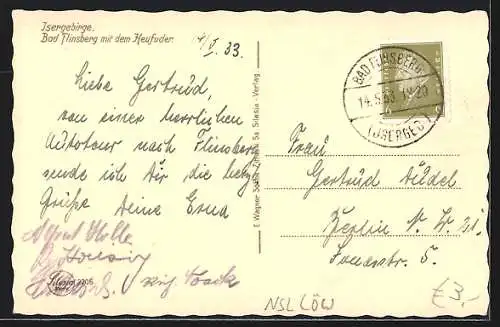 Isergebirge.
Bad Flinsberg mit dem Heufuder.
14/5. 33.
Liebe Gertrud,
von einer herrlichen
Autotour nach Flinsberg
sende ich Dir die herzl.
Grüße Deine Erna
Silesia
2206
E. Wagner Söhne, Zittau Sa. Silesia-Verlag
BAD FLINSBERG
14.5.33. 19-20
(ISERGEB.)
Frau
Gertrud
Berlin N. W. 21.
5.
NSL LÖW
€3,-